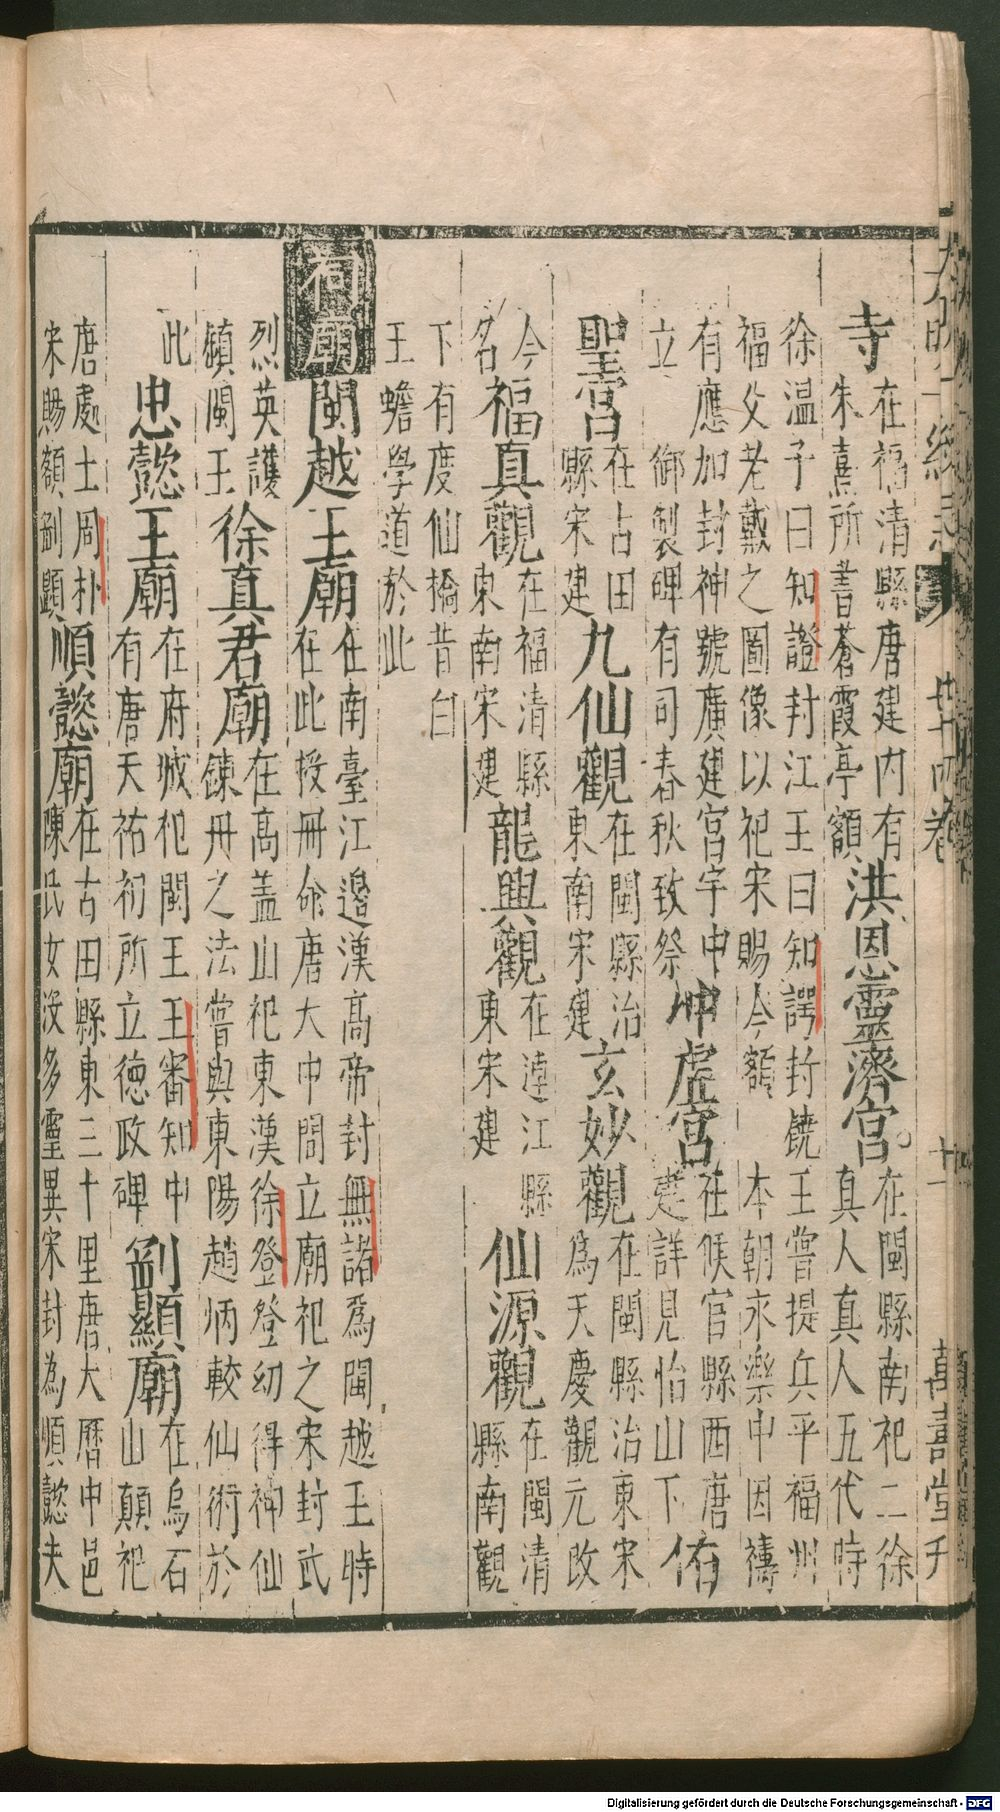 寺
在福清縣唐建内有
朱熹所書蒼霞亭額
洪恩靈濟宮
在閩縣南祀二徐
真人真人五代時
徐温子曰知證封江王曰知諤封饒王嘗提兵平福州
福父老戴之圖像以祀宋賜今額
本朝永樂中因禱
有應加封神號廣建宮宇中
立
御製碑有司春秋致祭
冲虛宮
在候官縣西唐
建詳見怡山下
佑
聖宮
在古田
縣宋建
九仙觀
在閩縣治
東南宋建
玄妙觀
在閩縣治東宋
為天慶觀元改
今
名
福真觀
在福清縣
東南宋建
龍興觀
在連江縣
東宋建
仙源觀
在閩清
縣南觀
下有度仙橋昔白
王蟾學道於此
祠廟
閩越王廟
在南臺江邉漢高帝封無諸為閩越王時
在此授冊命唐大中間立廟祀之宋封武
烈英護
鎮閩王
徐真君廟
在高盖山祀東漢徐登登幼得神仙
鍊丹之法嘗與東陽趙炳較仙術於
此
忠懿王廟
在府城祀閩王王審知中
有唐天祐初所立德政碑
劉顯廟
在烏石
山顛祀
唐處士周朴
宋賜額剛顯
順懿廟
在古田縣東三十里唐大曆中邑
陳氏女沒多靈異宋封為順懿夫
大明一統志
七十四卷
十一
萬壽堂刊
Digitalisierung gefördert durch die Deutsche Forschungsgemeinschaft - DFG